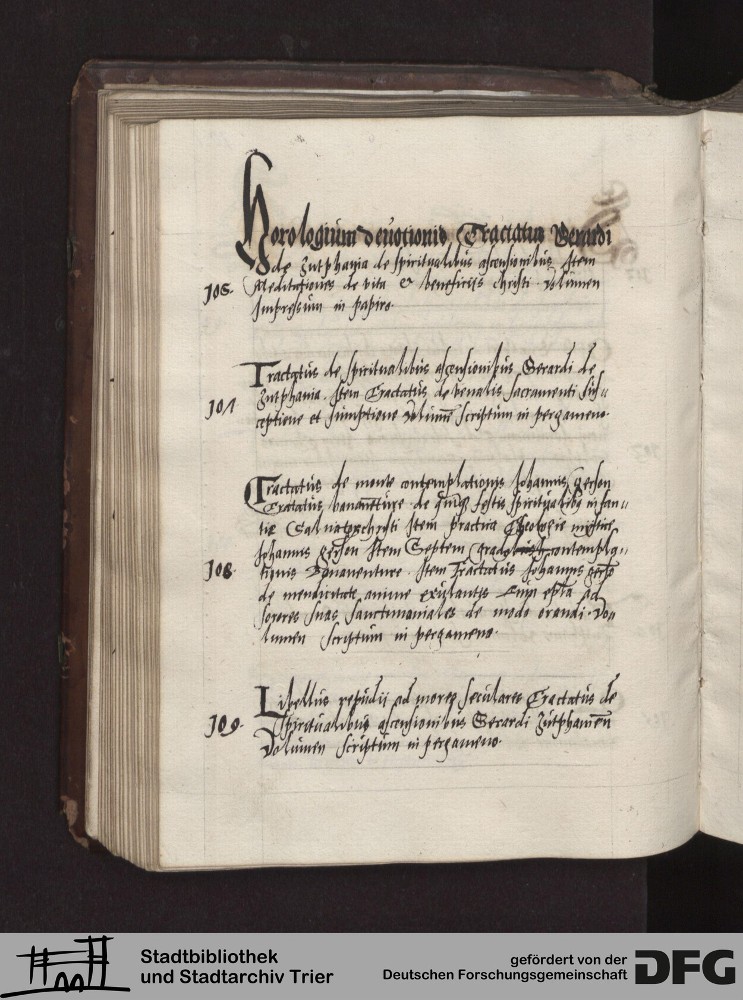 Horologium deuotionis Tractatus Gerardi
de Zutphania de spiritualibus ascensionibus Item
106. Meditationes de vita & beneficiis christi Volumen
Impressum in papiro.
Tractatus de spiritualibus ascensionibus Gerardi de
Zutphania. Item Tractatus de sacramenti sus=
107 ceptione et sumptione Volumen scriptum in pergameno.
Tractatus de monte contemplationis Johannis gerson
Tractatus bonauenture de quinque festis spiritualibus infan=
tie Saluatoris christi Item practica Theologie mistice
Johannis gerson Item Septem contempla=
108 tionis Bonauenture. Item Tractatus Johannis gerson
de mendicitate anime Eius epistola ad
sorores suas sanctimoniales de modo orandi. Vo=
lumen scriptum in pergameno.
Libellus repudii ad mores seculares Tractatus de
109. Spiritualibus ascensionibus Gerardi Zutphanien
Volumen scriptum in pergameno.
Stadtbibliothek
und Stadtarchiv Trier
gefördert von der
Deutschen Forschungsgemeinschaft
DFG